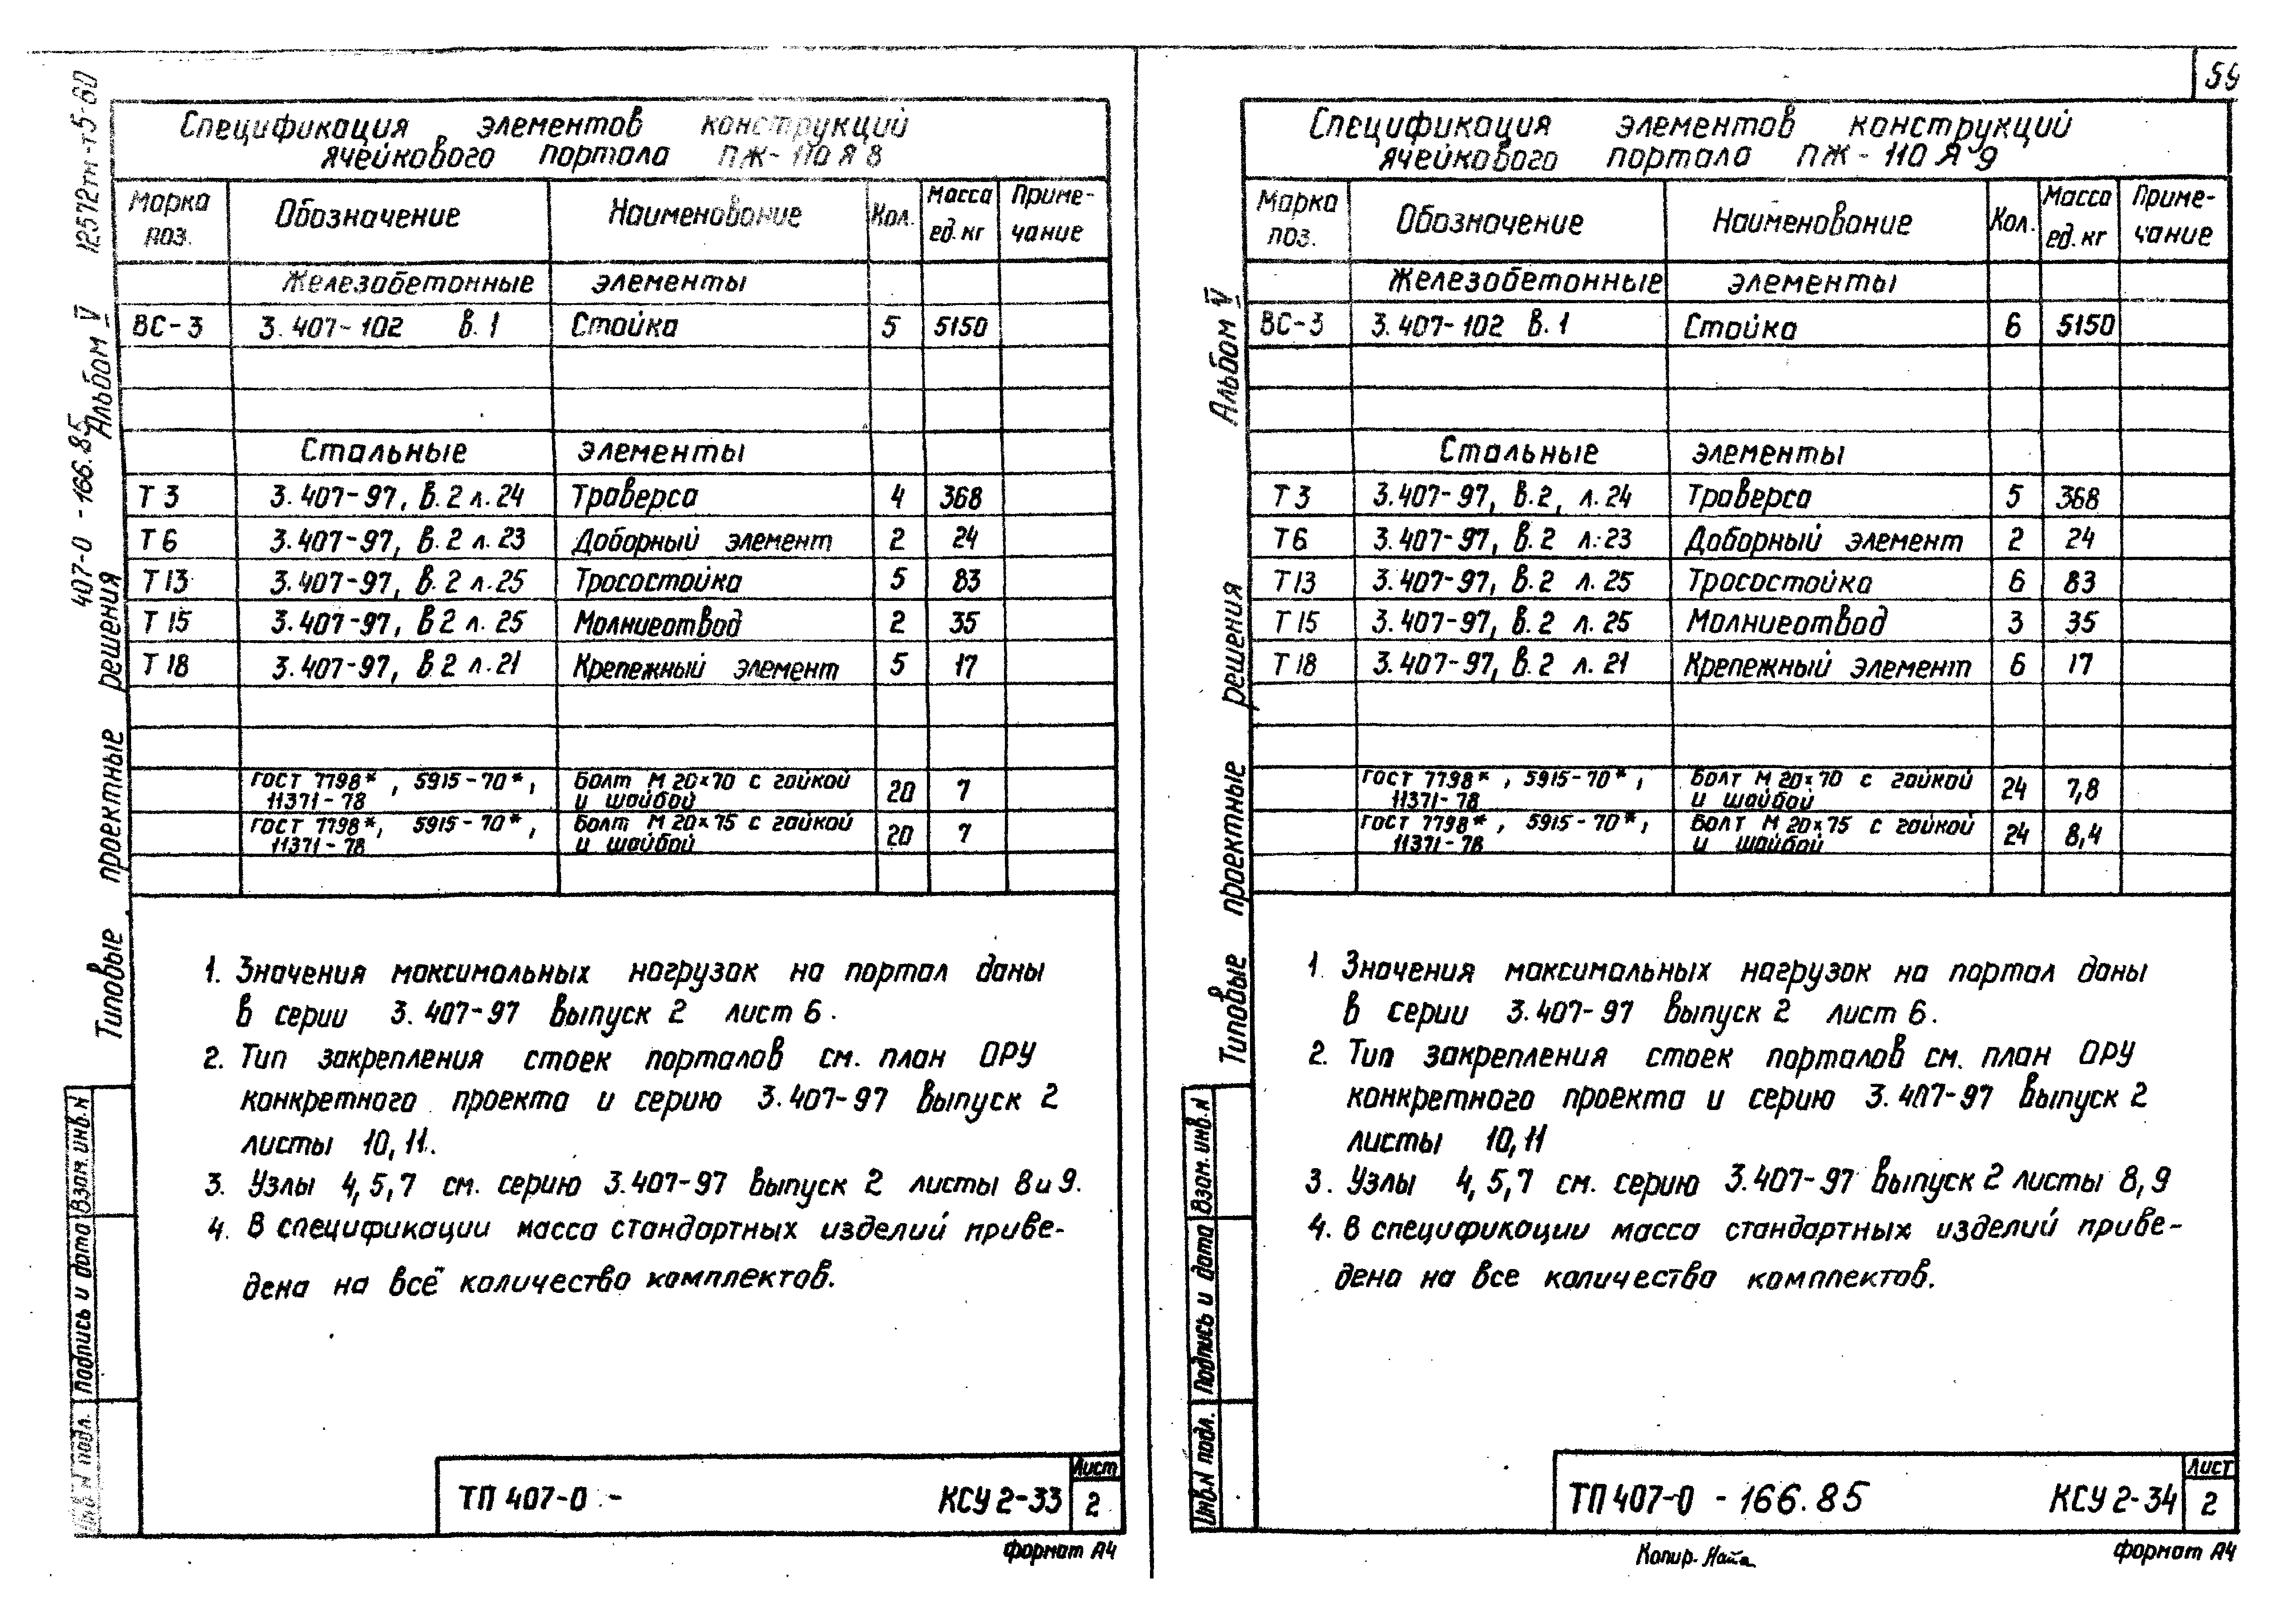 Спецификация элементов конструкций
ячейкового портала ПЖ-110 Я 8
Марка поз. Обозначение Наименование Кол. Масса ед. кг Приме-чание
Железобетонные элементы
ВС-3 3.407-102 в.1 Стойка 5 5150
Стальные элементы
Т 3 3.407-97, в.2 л.24 Траверса 4 368
Т 6 3.407-97, в.2 л.23 Доборный элемент 2 24
Т 13 3.407-97, в.2 л.25 Тросостойка 5 83
Т 15 3.407-97, в 2 л.25 Молниеотвод 2 35
Т 18 3.407-97, в.2 л.21 Крепежный элемент 5 17
ГОСТ 7798*, 5915-70*, Болт М 20×70 с гайкой 20 7
11371-78 и шайбой
ГОСТ 7798*, 5915-70*, Болт М 20×75 с гайкой 20 7
11371-78 и шайбой
1. Значения максимальных нагрузок на портал даны
в серии 3.407-97 выпуск 2 лист 6.
2. Тип закрепления стоек порталов см. план ОРУ
конкретного проекта и серию 3.407-97 выпуск 2
листы 10, 11.
3. Узлы 4, 5, 7 см. серию 3.407-97 выпуск 2 листы 8 и 9.
4. В спецификации масса стандартных изделий приве-
дена на всё количество комплектов.
ТП 407-0 - КСУ 2-33 Лист 2
Формат А4
12572тм-т5-60
407-0 -166.85
Альбом V
Типовые проектные решения
Взам. инв. N
Подпись и дата
Инв. N подл.
59
Спецификация элементов конструкций
ячейкового портала ПЖ-110 Я 9
Марка поз. Обозначение Наименование Кол. Масса ед. кг Приме-чание
Железобетонные элементы
ВС-3 3.407-102 в.1 Стойка 6 5150
Стальные элементы
Т 3 3.407-97, в.2, л.24 Траверса 5 368
Т6 3.407-97, в.2 л.23 Доборный элемент 2 24
Т13 3.407-97, в.2 л.25 Тросостойка 6 83
Т 15 3.407-97, в.2 л.25 Молниеотвод 3 35
Т 18 3.407-97, в.2 л.21 Крепежный элемент 6 17
ГОСТ 7798*, 5915-70*, Болт М 20×70 с гайкой 24 7,8
11371-78 и шайбой
ГОСТ 7798*, 5915-70*, Болт М 20×75 с гайкой 24 8,4
11371-78 и шайбой
1. Значения максимальных нагрузок на портал даны
в серии 3.407-97 выпуск 2 лист 6.
2. Тип закрепления стоек порталов см. план ОРУ
конкретного проекта и серию 3.407-97 выпуск 2
листы 10, 11
3. Узлы 4, 5, 7 см. серию 3.407-97 выпуск 2 листы 8, 9
4. В спецификации масса стандартных изделий приве-
дена на все количество комплектов.
ТП 407-0 - 166.85 КСУ 2-34 Лист 2
Копир. Ната Формат А4
Альбом V
Типовые проектные решения
Взам. инв. N
Подпись и дата
Инв. N подл.